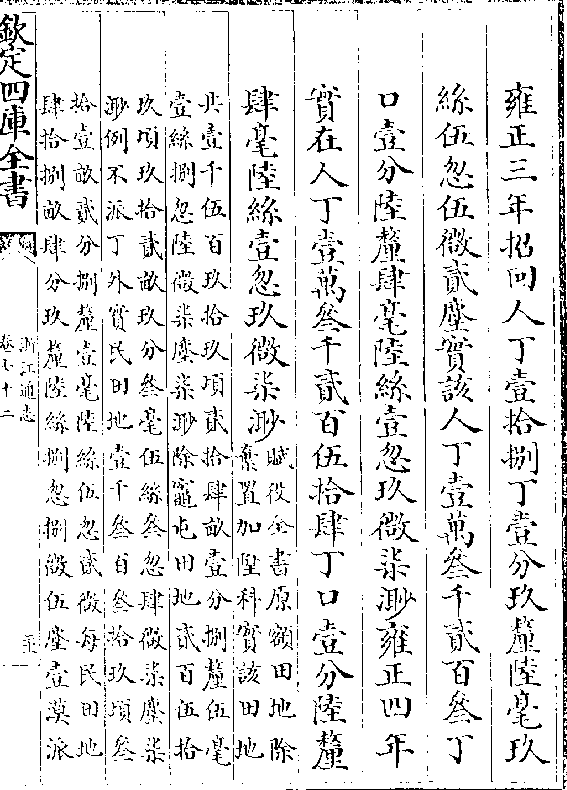 雍正三年招回人丁壹拾捌丁壹分玖釐陸毫玖
絲伍忽伍微貳塵實該人丁壹萬叁千貳百叁丁
口壹分陸釐肆毫陸絲壹忽玖微柒渺雍正四年
實在人丁壹萬叁千貳百伍拾肆丁口壹分陸釐
肆毫陸絲壹忽玖微柒渺
賦役全書原額田地除
棄置加陞科實該田地
共壹千伍百玖拾玖項貳拾肆畝壹分捌釐伍毫
壹絲捌忽陸微柒塵柒渺除竈屯田地貳百伍拾
玖項玖拾貳畝玖分叁毫伍絲叁忽肆微柒塵柒
渺例不派丁外實民田地壹千叁百叁拾玖項叁
拾壹畝貳分捌釐壹毫陸絲伍忽貳微每民田地
肆拾捌畝肆分玖釐陸絲捌忽捌微伍塵壹漠派
欽定四庫全書
浙江通志
卷七十二